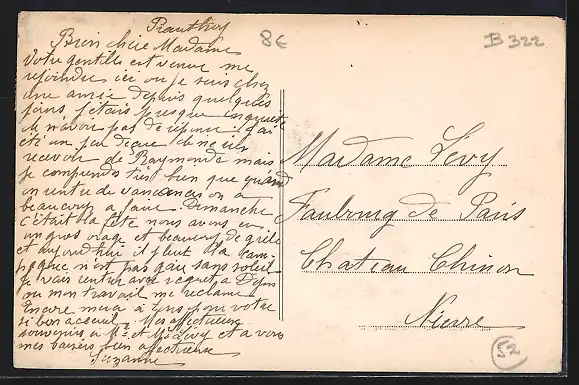 Prauthoy
Bien chère Madame
Votre gentille est venue me
rejoindre ici ou je suis chez
une amie depuis quelques
jours j'étais presque inquiète
de n'avoir pas de réponse. J'ai
été un peu déçue de ne rien
recevoir de Raymonde mais
je comprends très bien que quand
on rentre de vancances on a
beaucoup a faire. Dimanche
C'était la fête nous avons eu
un gros orage et beaucoup de grêle
et aujourd'hui il pleut la cam
pagne n'est pas gaie sans soleil
Je vais rentrer avec regret a Dijon
ou mon travail me réclame
Encore merci à vous pour votre
si bon accueil. Mes affectueux
souvenirs à Mr et Mme Levy et a vous
mes baisers bien affectueux
Suzanne
8€
B 322
Madame Levy
Faubourg de Paris
Chateau Chinon
Nièvre
52